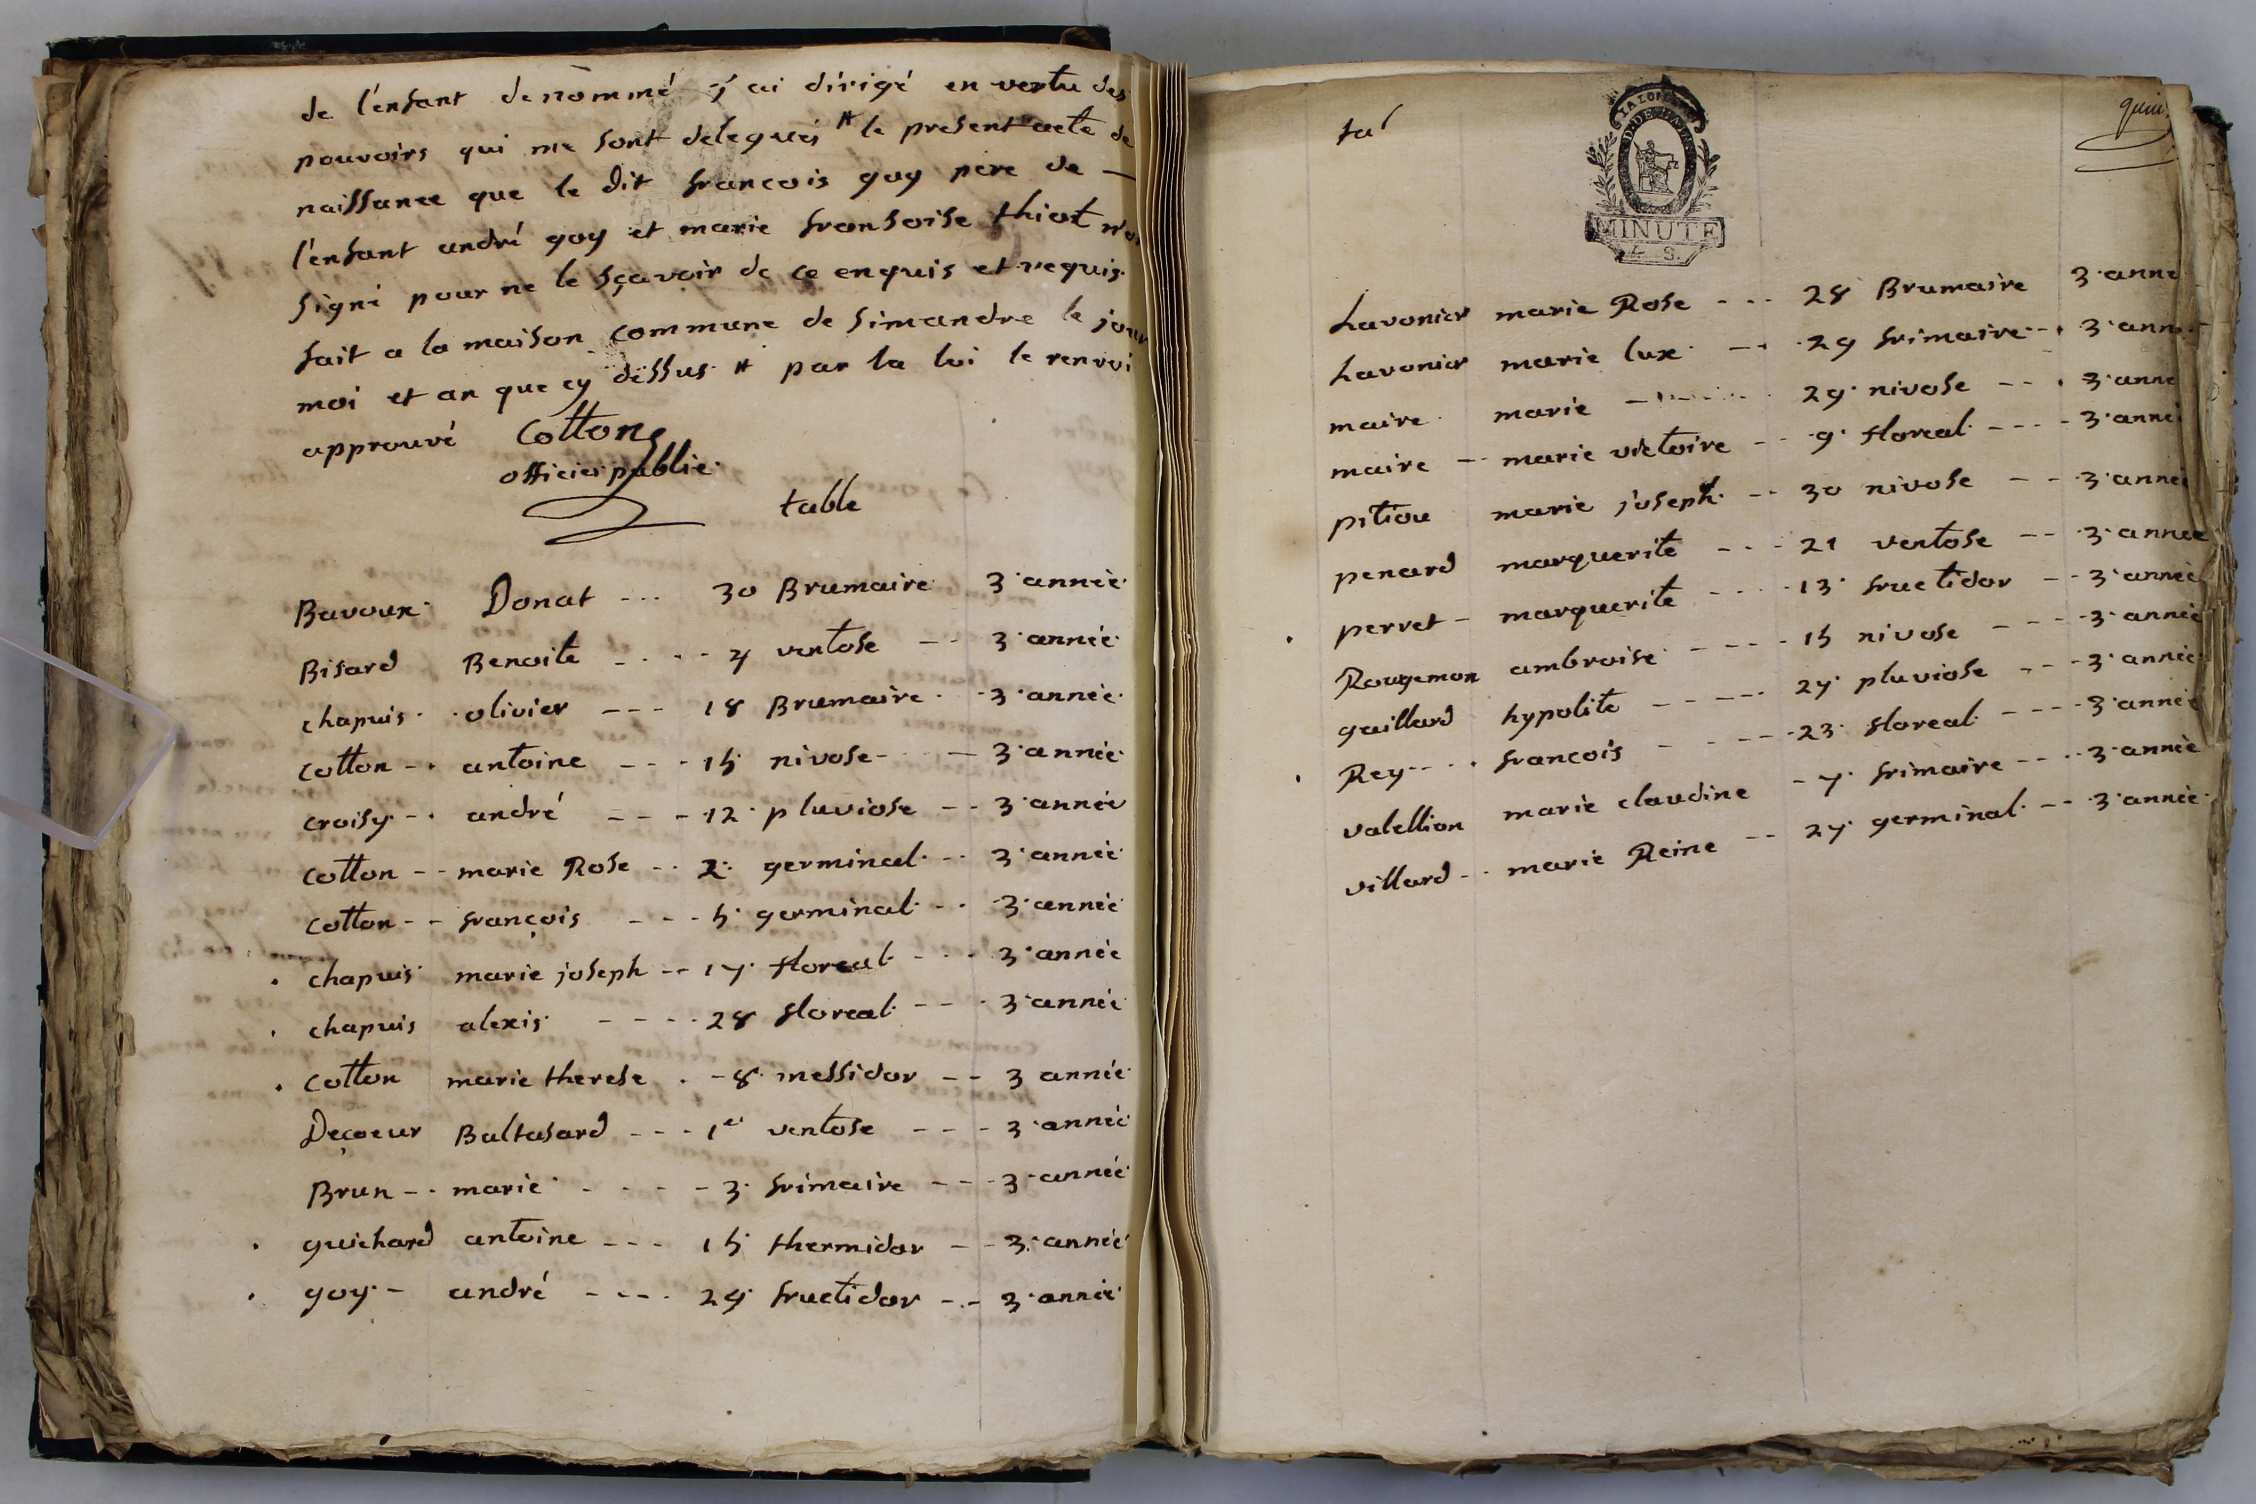 de l'enfant denommé j'ai dirigé en vertu des
pouvoirs qui me sont delegués # le present acte de
naissance que le dit francois goy pere de —
l'enfant andré goy et marie fransoise thiot n'on
signé pour ne le sçavoir de ce enquis et requis.
fait a la maison commune de simandre le jour
moi et an que cy dessus # par la loi le renvoi
approuvé Cotton
officier public
table
Bavoux Donat --- 30 Brumaire 3 année
Bisard Benoite ---- 4 ventose -- 3 année
chapuis olivier --- 18 Brumaire - 3 année
cotton -- antoine --- 15 nivose --- 3 année
croisy -- andré --- 12 pluviose -- 3 année
cotton -- marie Rose -- 2 germinal -- 3 année
cotton -- françois --- 5 germinal -- 3 année
chapuis marie joseph -- 17 floreal --- 3 année
chapuis alexis ---- 28 floreal --- 3 année
cotton marie therese -- 8 messidor -- 3 année
Decoeur Baltasard --- 1er ventose --- 3 année
Brun -- marie ---- 3 frimaire --- 3 année
guichard antoine --- 15 thermidor -- 3 année
goy - andré ---- 29 fructidor -- 3 année
tal
MINUTE
4 S.
Lavonier marie Rose --- 28 Brumaire 3 anné
Lavonier marie lux -- 29 frimaire -- 3 anné
maire marie --- 29 nivose --- 3 anné
maire -- marie victoire -- 9 floreal ---- 3 anné
pitiou marie joseph -- 30 nivose -- 3 année
penard marguerite --- 21 ventose -- 3 année
perret - marguerite ---- 13 fructidor -- 3 année
Rougemon ambroise ---- 15 nivose ---- 3 année
gaillard hypolite ---- 27 pluviose --- 3 année
Rey ---- francois ---- 23 floreal ---- 3 année
valellion marie claudine - 7 frimaire ---- 3 année
villard -- marie Reine -- 27 germinal -- 3 année